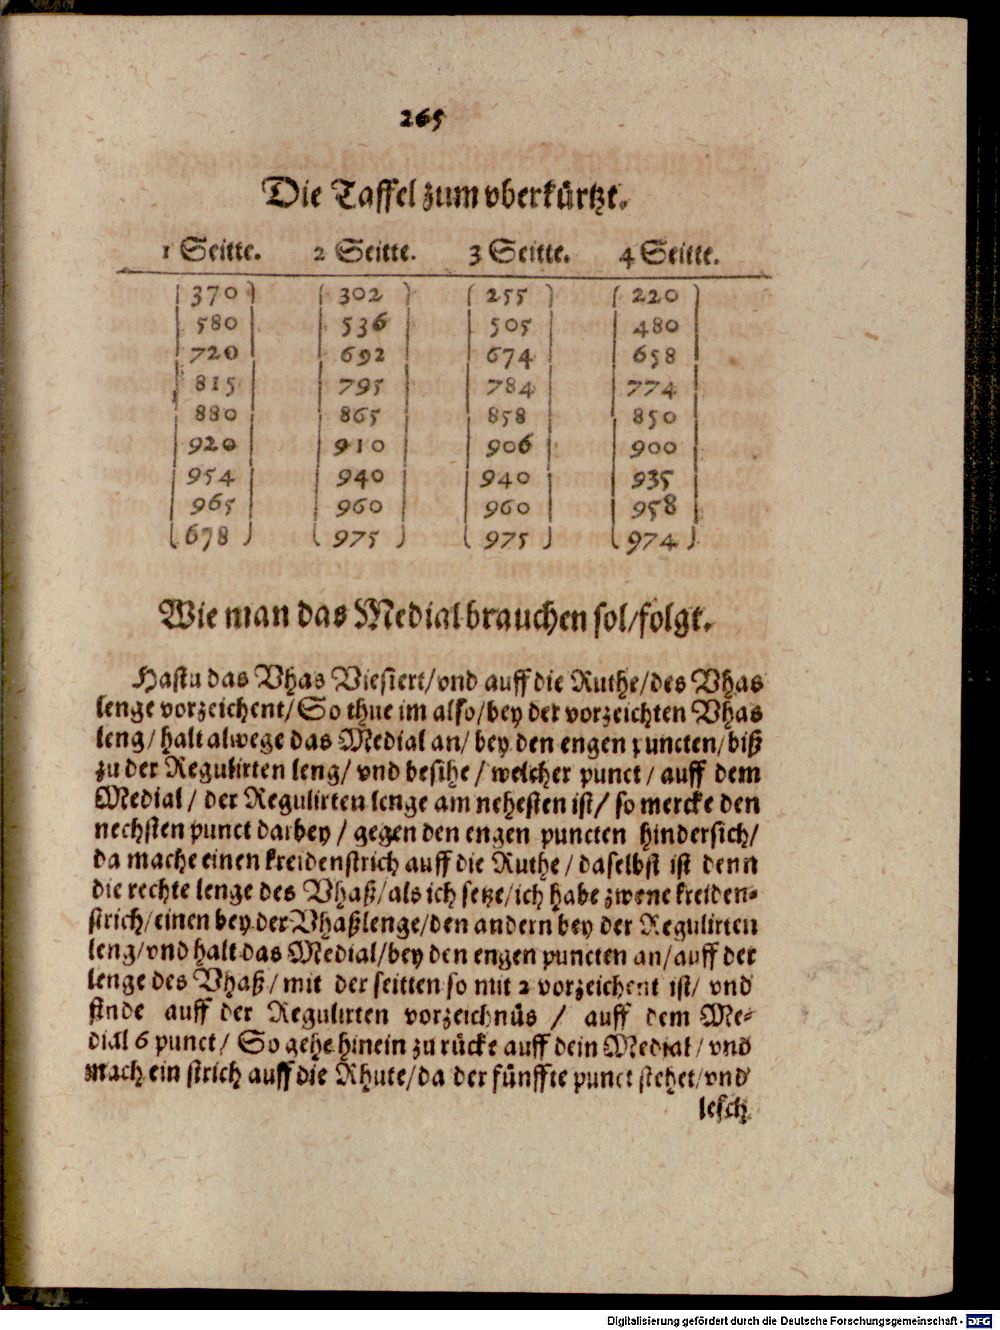 265
Die Taffel zum vberkürtzt.
1 Seitte. 2 Seitte. 3 Seitte. 4 Seitte.
370 302 255 220
580 536 505 480
720 692 674 658
815 795 784 774
880 865 858 850
920 910 906 900
954 940 940 935
965 960 960 958
678 975 975 974
Wie man das Medial brauchen sol/folgt.
Hastu das Vhas Viesiert/vnd auff die Ruthe/des Vhas
lenge vorzeichent/So thue im also/bey der vorzeichten Vhas
leng/halt alwege das Medial an/bey den engen puncten/biß
zu der Regulirten leng/vnd besihe/welcher punct/auff dem
Medial/der Regulirten lenge am nehesten ist/so mercke den
nechsten punct darbey/gegen den engen puncten hindersich/
da mache einen kreidenstrich auff die Ruthe/daselbst ist denn
die rechte lenge des Vhaß/als ich setze/ich habe zwene kreiden-
strich/einen bey der Vhaßlenge/den andern bey der Regulirten
leng/vnd halt das Medial/bey den engen puncten an/auff der
lenge des Vhaß/mit der seitten so mit 2 vorzeichent ist/vnd
finde auff der Regulirten vorzeichnüs/auff dem Me-
dial 6 punct/So gehe hinein zu rücke auff dein Medial/vnd
mach ein strich auff die Rhute/da der fünffte punct stehet/vnd
lesch
Digitalisierung gefördert durch die Deutsche Forschungsgemeinschaft - DFG